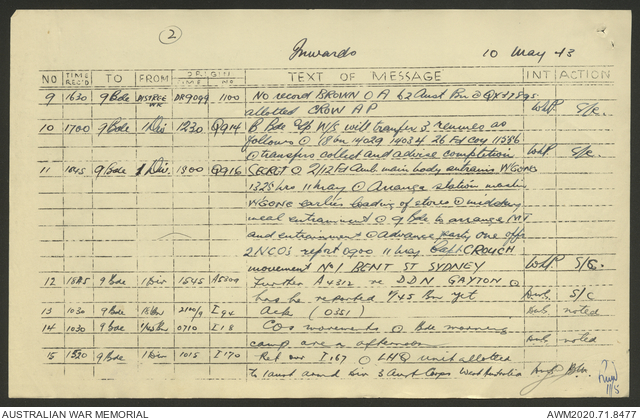 2
Inwards 10 May 43
NO TIME REC'D TO FROM ORIGIN TIME NO TEXT OF MESSAGE INT ACTION
9 1630 9 Bde 1100 No record BROWN O A 62 Aust Bn @
allotted CROW A P S/C.
10 1700 9 Bde 1 Div 1230 Q914 B Bde will transfer 3 as
follows @ 18 bn 14029 14034 26 Fd Coy 11586
@ transfers collect and advise completion S/C.
11 1845 9 Bde 1 Div 1800 Q916 SECRET @ 2/12 Fd Amb main body entrains W'GONG
1325 hrs 11 May @ Arrange station master
W'GONG earlier loading of stores @ midday
meal entrainment @ 9 Bde to arrange M T
and entrainment @ advance party one offr
2 NCOs report 0900 11 May Capt CROUCH
movement No 1 BENT ST SYDNEY S/C.
12 9 Bde 1 Div 1545 Further A4312 re DDN GAYTON @
has he reported 1/45 Bn yet S/C
13 1030 9 Bde I 94 Ack (0351) noted
14 1030 9 Bde 1/45 Bn 0710 I 18 COs @ Bde morning
camp are @ afternoon noted
15 1520 9 Bde 1 Div 1015 I 170 Ref our I 167 @ LHQ unit allotted
to 1 Aust Armd Div 3 Aust Corps West Australia
11/5
AUSTRALIAN WAR MEMORIAL AWM2020.71.8477